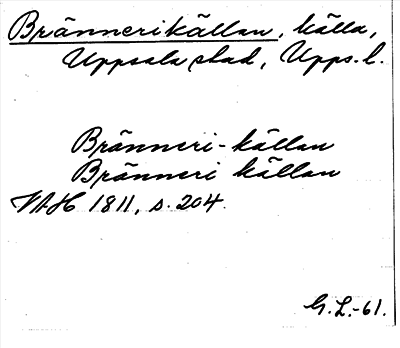 Brännerikällan, källa,
Uppsala stad, Upps. l.
Bränneri-källan
Bränneri källan
VAH 1811, s. 204.
G. L.-61.